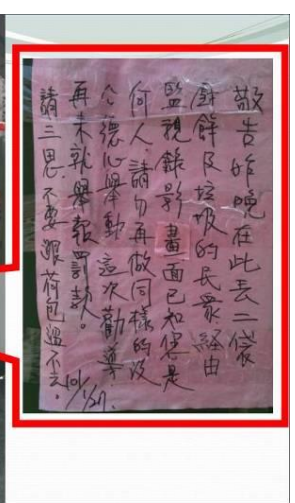 敬告昨晚在此丟二袋
廚餘及垃圾的民眾經由
監視錄影畫面已知您是
何人,請勿再做同樣的沒
公德心舉動,這次勸導,
再來就舉報罰款。
請三思,不要跟荷包過不去。
101/1/27.